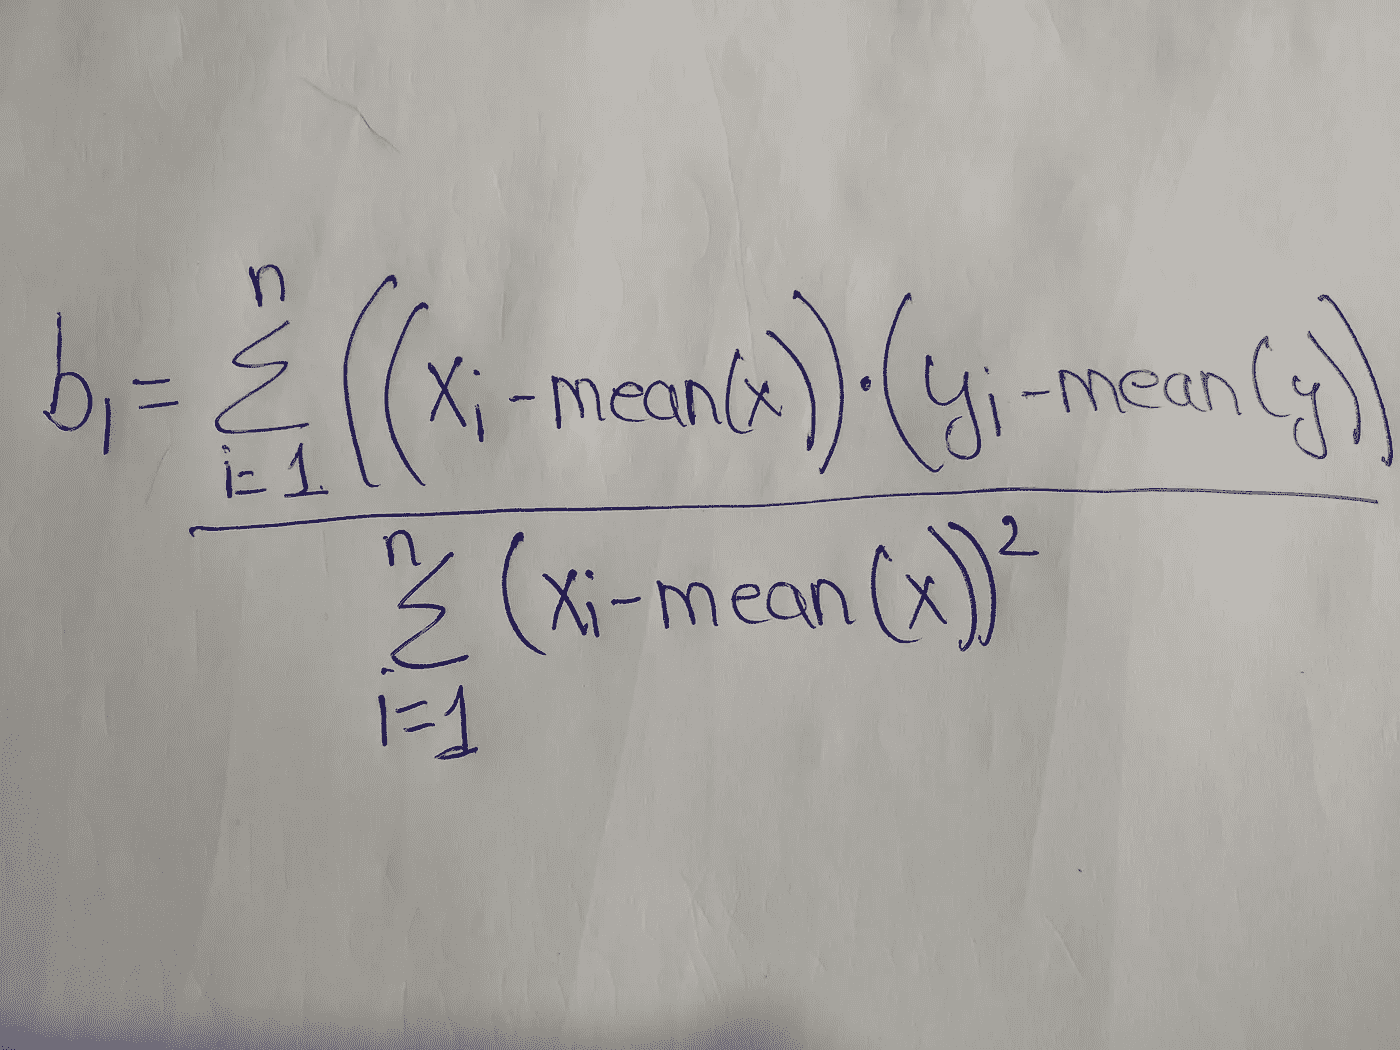 b₁ = n∑i=1 ((xᵢ - mean(x)) · (yᵢ - mean(y))
n∑i=1 (xᵢ - mean(x))²